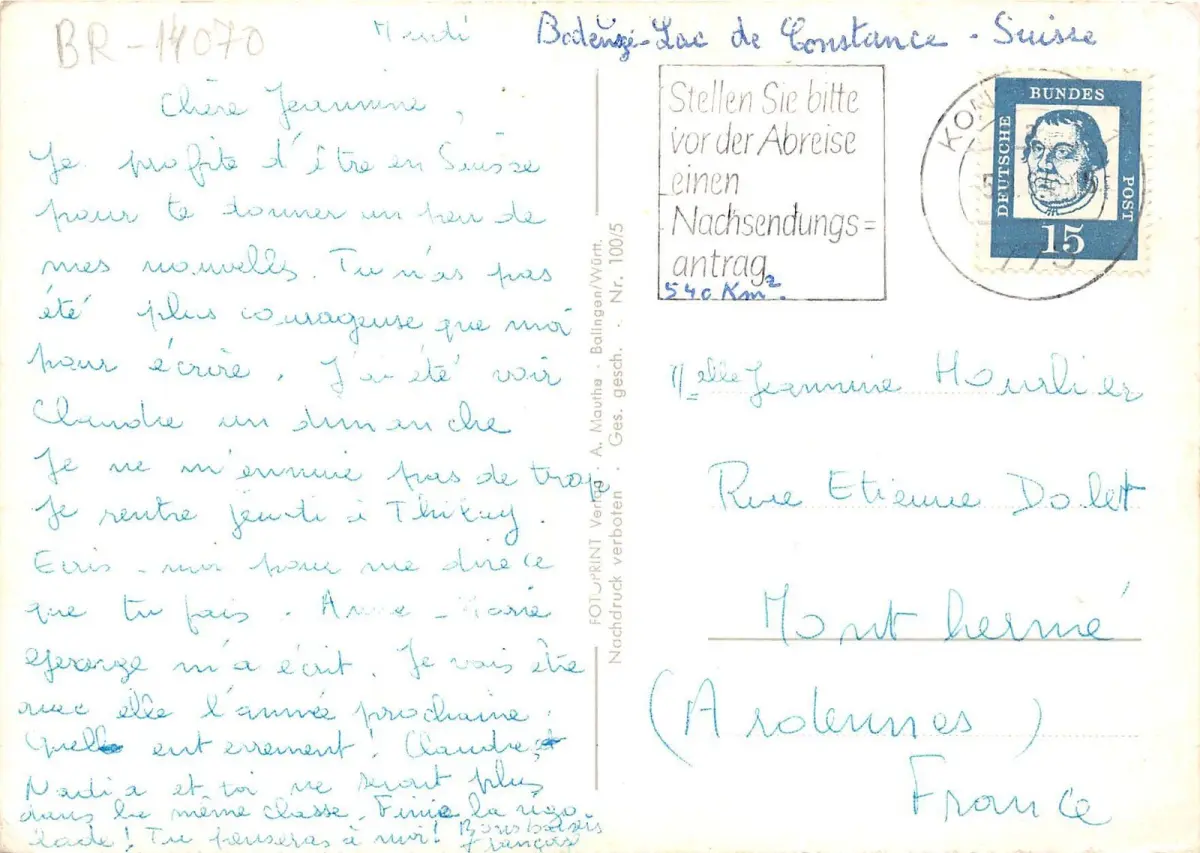 BR-14070
Mardi
Bodensée-Lac de Constance - Suisse
Chère Jeannine,
Je profite d'être en Suisse
pour te donner un peu de
mes nouvelles. Tu n'as pas
été plus courageuse que moi
pour écrire. J'ai été voir
Claudie un dimanche
Je ne m'ennuie pas de trop
Je rentre jeudi à
Ecris-moi pour me dire ce
que tu fais. Anne-Marie
George m'a écrit. Je vais être
avec elle l'année prochaine.
Quelle enterrement! Claudie,
Nadia et toi ne seront plus
dans la même classe. Finie la rigo
lade! Tu penseras à moi! Bons baisers
Françoise
FOTOPRINT Verlag · A. Mauthe · Balingen/Württ.
Nachdruck verboten · Ges. gesch. · Nr. 100/5
Stellen Sie bitte
vor der Abreise
einen
Nachsendungs=
antrag
540 Km².
KON
775
DEUTSCHE
BUNDES
POST
15
Melle Jeannine Hourlier
Rue Etienne Dolet
Monthermé
(Ardennes)
France